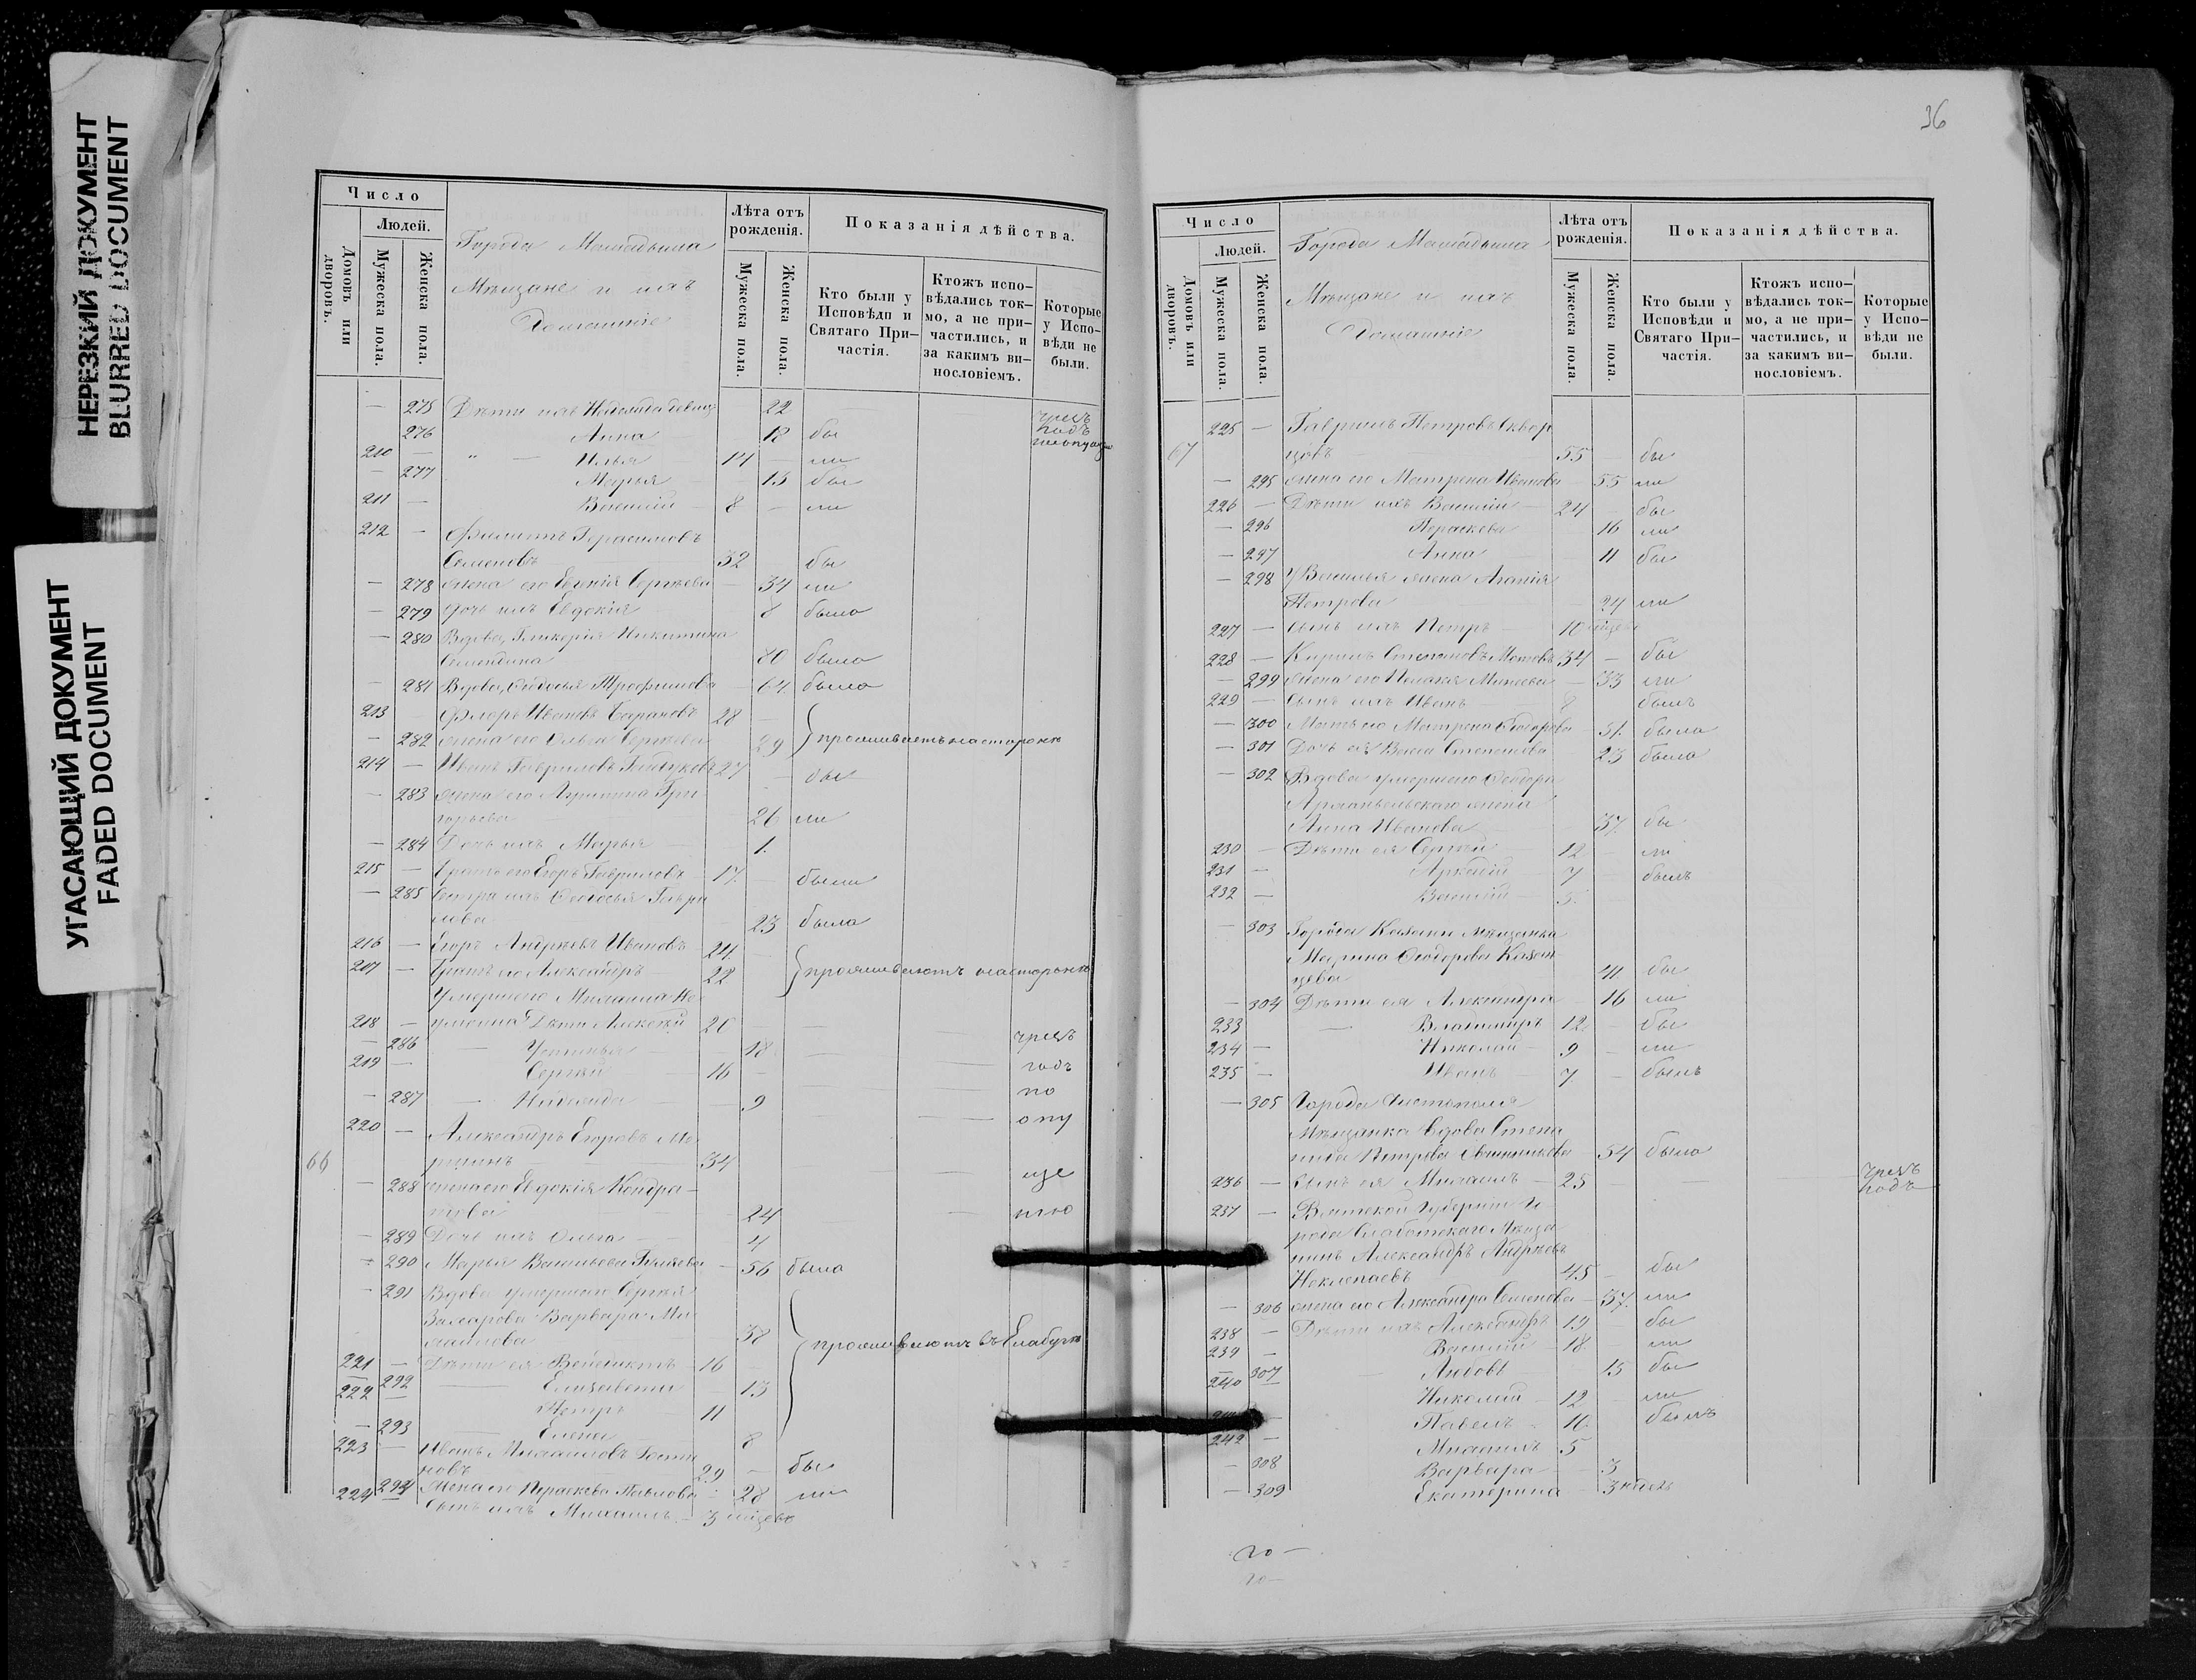 НЕРЕЗКИЙ ДОКУМЕНТ
BLURRED DOCUMENT
УГАСАЮЩИЙ ДОКУМЕНТ
FADED DOCUMENT
Число
Людей.
Домовъ или дворовъ.
Мужеска пола.
Женска пола.
Города Мамадыша
Мѣщане и ихъ
Домашніе
Лѣта отъ рожденія.
Мужеска пола.
Женска пола.
Показанія дѣйства.
Кто были у Исповѣди и Святаго При-
частія.
Ктожъ испо-
вѣдались ток-
мо, а не при-
частились, и
за какимъ ви-
нословіемъ.
Которые
у Испо-
вѣди не
были.
— 275 Дѣти ихъ 22 чрезъ
276 Анна 18 бы подъ
210 — " — Илья 14 — ли
— 277 Марья — 13 бы
211 — Василій 8 — ли
212 — Филиппъ Герасимовъ
Семеновъ 32 бы
— 278 жена его Евгенія Сергѣева — 34 ли
— 279 дочь ихъ Евдокія 8 была
— 280 Вдова Гликерія Никитина
80 была
— 281 Вдова Ѳедосья Трофимова — 64 была
213 Флоръ Ивановъ Барановъ 28
— 282 жена его Ольга Сергѣева 29 проживаетъ на сторонѣ
214 — Иванъ Гавриловъ 27 — бы
— 283 жена его Гри-
горьева 26 ли
— 284 Дочь ихъ Марья 1.
215 — Братъ его Егоръ Гавриловъ 17. — были
— 285 Сестра ихъ Ѳедосья Гаври
лова 23 была
216 — Егоръ Андреевъ Ивановъ 24.
217 — Братъ его Александръ 22 проживаютъ на сторонѣ
Умершаго Михаила
218 — Дѣти Алексѣй 20 чрезъ
— 286 — Устинья 18
219 — Сергѣй 16 — годъ
— 287 — 9 по
220 — Александръ Егоровъ опу
66 34
— 288 жена его Евдокія Кондра- ще
това 24 нію
— 289 Дочь ихъ Ольга 4
— 290 Марья Васильева — 56 была
— 291 Вдова умершаго Сергѣя
Захарова Варвара Ми-
хаилова 38 проживаютъ въ Елабугѣ
221 — Дѣти ея Венедиктъ 16
222 292 Елизавета 13
Петръ 11
— 293 Елена 8
223 — Иванъ Михаиловъ
новъ 29 — бы
224 294 Жена его Параскева Павлова — 28 ли
Сынъ ихъ Михаилъ — 3 мѣсяц
36
Число
Людей.
Домовъ или дворовъ.
Мужеска пола.
Женска пола.
Города Мамадыша
Мѣщане и ихъ
Домашніе
Лѣта отъ рожденія.
Мужеска пола.
Женска пола.
Показанія дѣйства.
Кто были у
Исповѣди и
Святаго При-
частія.
Ктожъ испо-
вѣдались ток-
мо, а не при-
частились, и
за какимъ ви-
нословіемъ.
Которые
у Испо-
вѣди не
были.
225 — Гавриилъ Петровъ Сквор
67 цовъ 55 — бы
— 295 жена его Матрена Иванова — 55 ли
226 — Дѣти ихъ Василій 24 — бы
— 296 Параскева 16 ли
— 297 Анна 11 бы
— 298 У Василья жена Агапія
Петрова 24 ли
227 — Сынъ ихъ Петръ 10
228 — Кирилъ Степановъ 34 — бы
— 299 жена его Пелагея — 33 ли
229 — Сынъ ихъ Иванъ 8 былъ
— 300 Мать его Матрена Ѳедорова 51. была
— 301 Дочь ея Васса Степанова 23 была
— 302 Вдова умершаго Ѳедора
Архангельскаго жена
Анна Иванова 37. бы
230 — Дѣти ея Сергѣй 12 ли
231 — Аркадій 7 — былъ
232 — Василій 5.
— 303 Города Казани мѣщанка
Марина Ѳедорова Казан
цева 41 бы
— 304 Дѣти ея Александра 16 ли
233 — Владиміръ 12. — бы
234 — Николай 9 — ли
235 — Иванъ 7 — былъ
— 305 Города Чистополя
Мѣщанка Вдова Степа
нида Петрова 54 была
236 — Сынъ ея Михаилъ 25 — чрезъ
подъ
237 — Вятской Губерніи Го
рода Слободскаго Мѣща
нинъ Александръ Андреевъ
45 — бы
— 306 жена его Александра Семенова — 37. ли
238 — Дѣти ихъ Александръ 19 — бы
239 — Василій 18. — ли
— 307 Любовь 15 бы
240 — Николай 12 — ли
— Павелъ 10. былъ
242 — Михаилъ 5
— 308 Варвара 3
— 309 Екатерина 3 недѣль
20 —
20 —